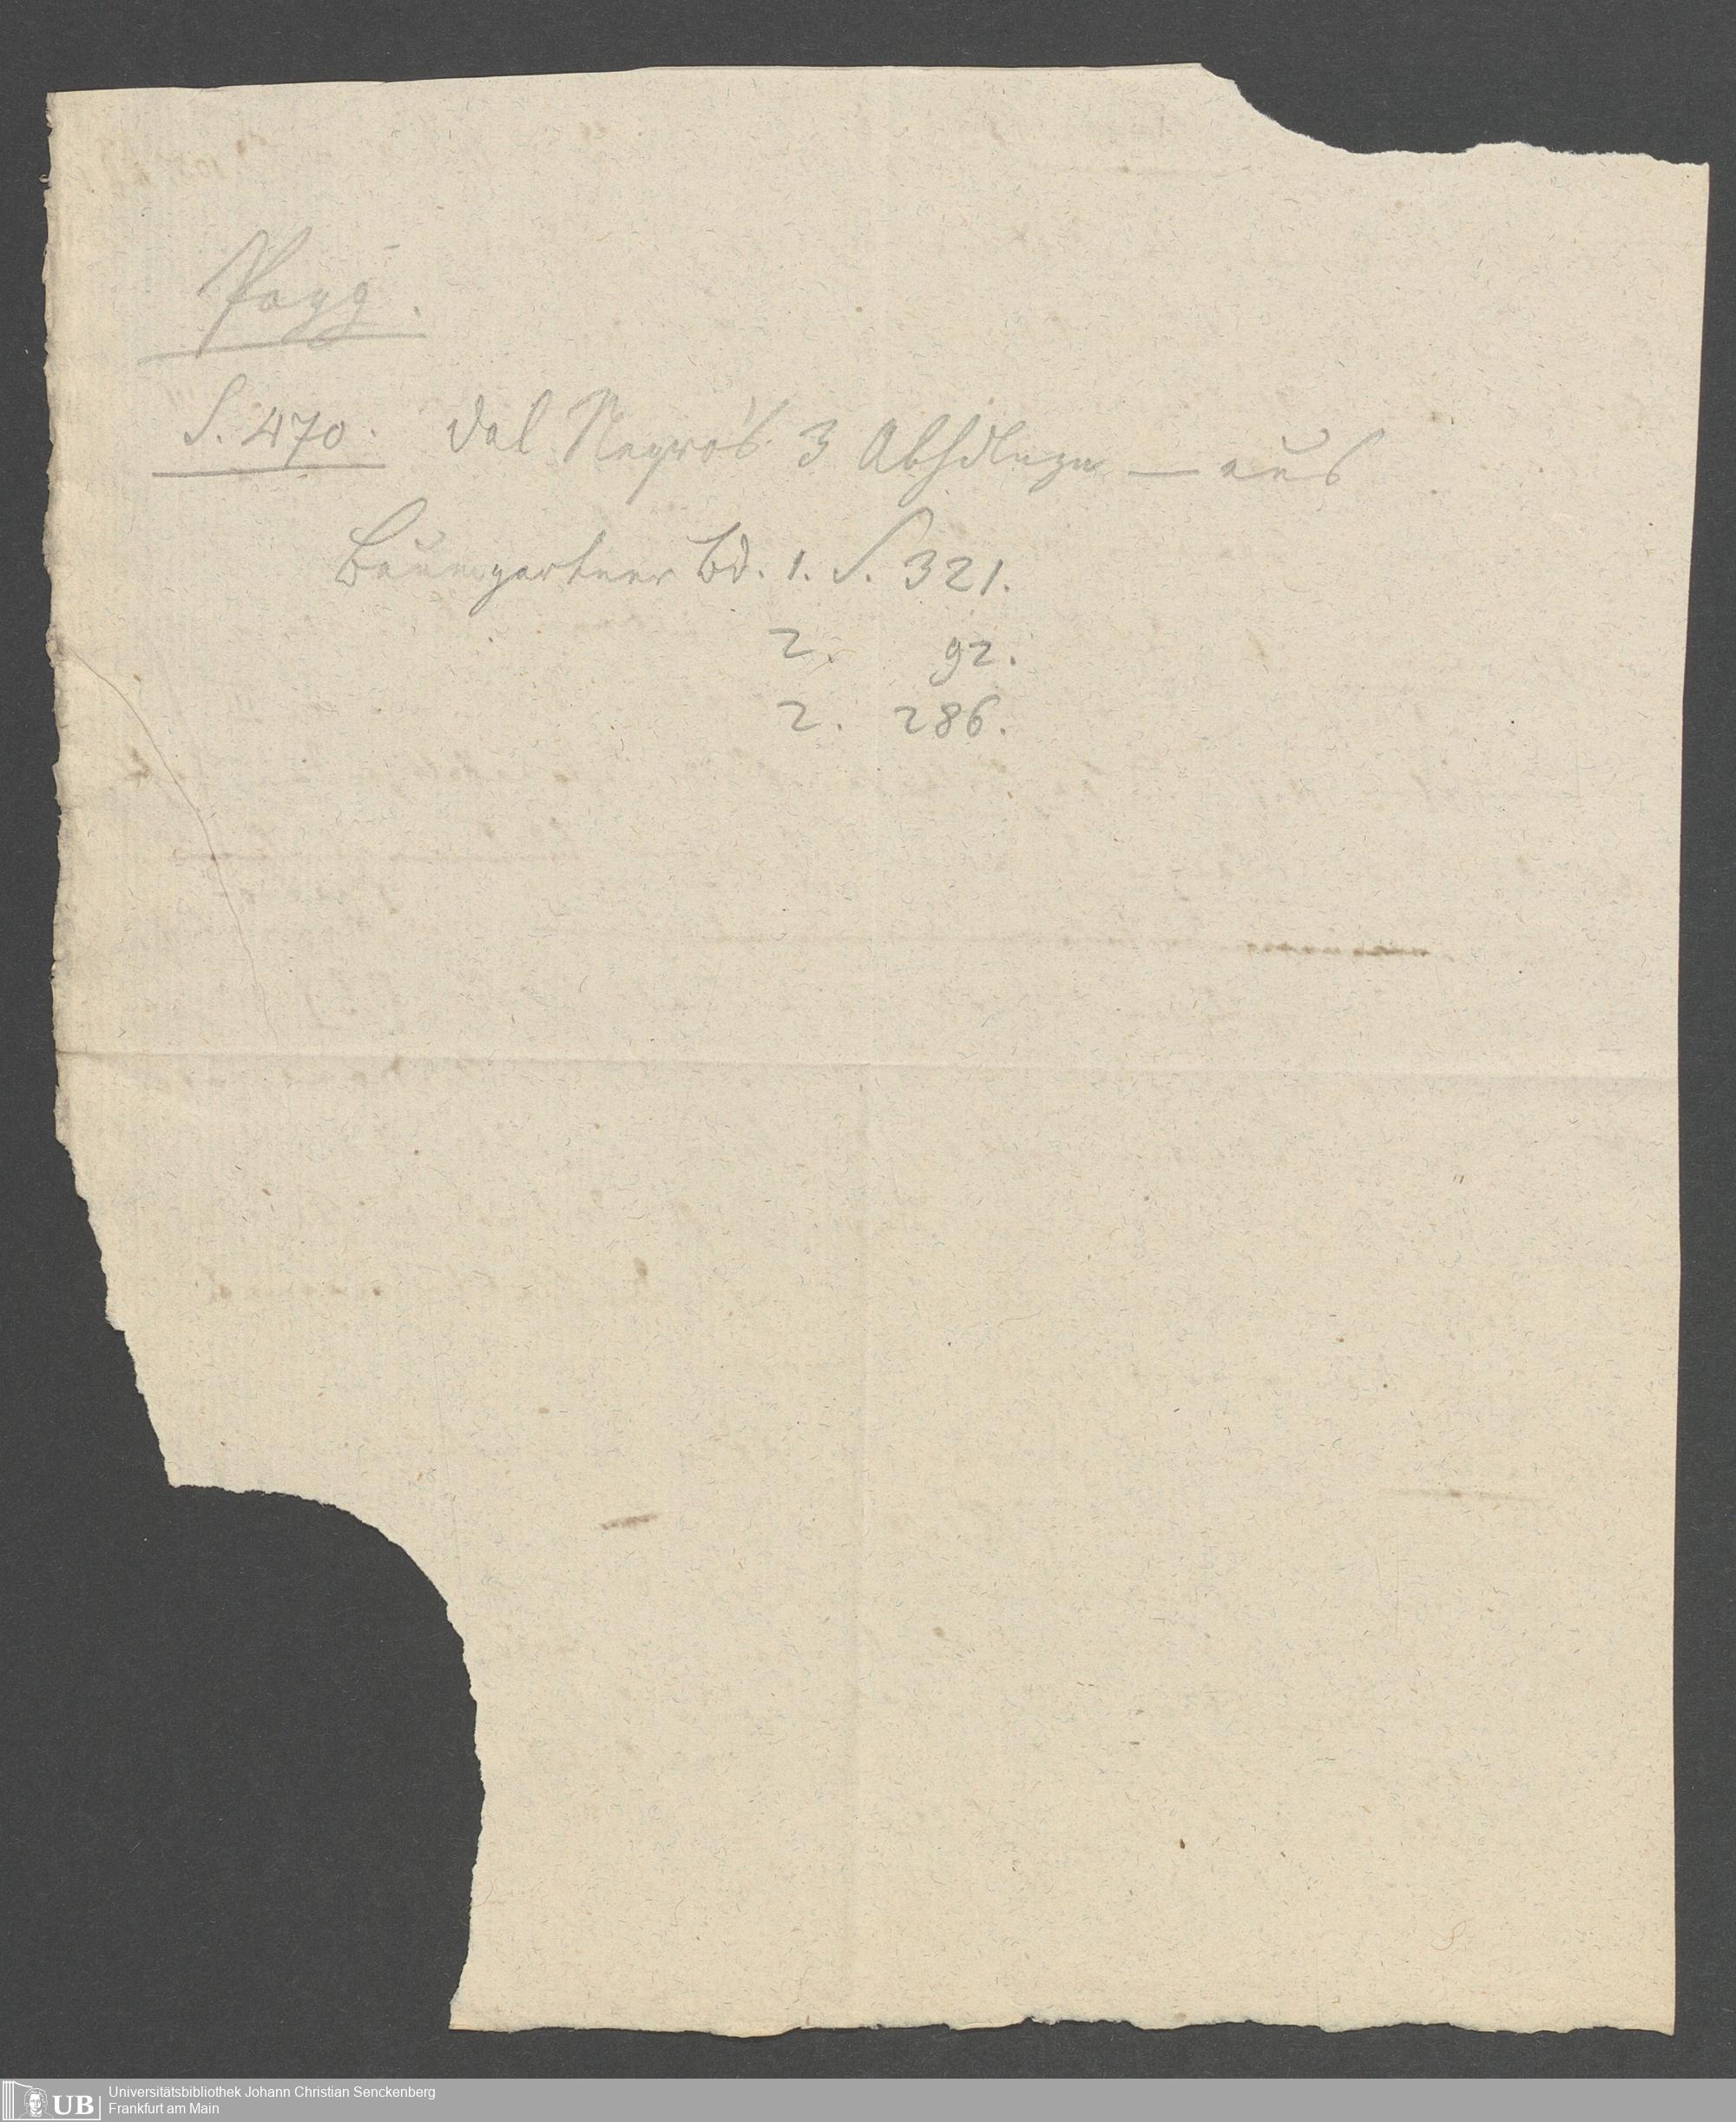 Pogg.
S. 470. dal Negro's 3 Abhdlngn — aus
Baumgartner Bd. 1. S. 321.
2. 92.
2. 286.
UB
Universitätsbibliothek Johann Christian Senckenberg
Frankfurt am Main